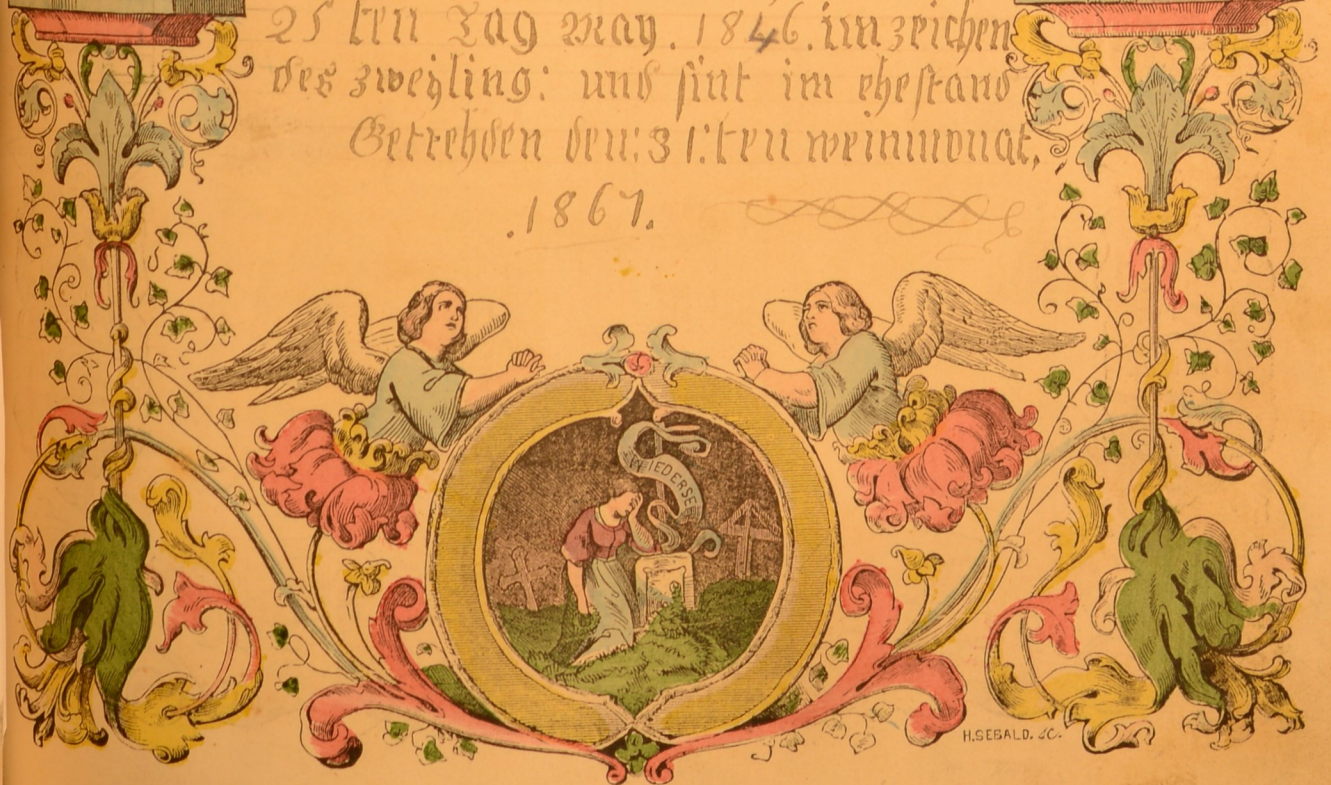 25 ten Tag May. 1846. im zeichen
des zweyling: und sint im ehestand
Getrehden den: 31: ten weinmonat,
.1867.
WIEDERSE
H. SEBALD. SC.